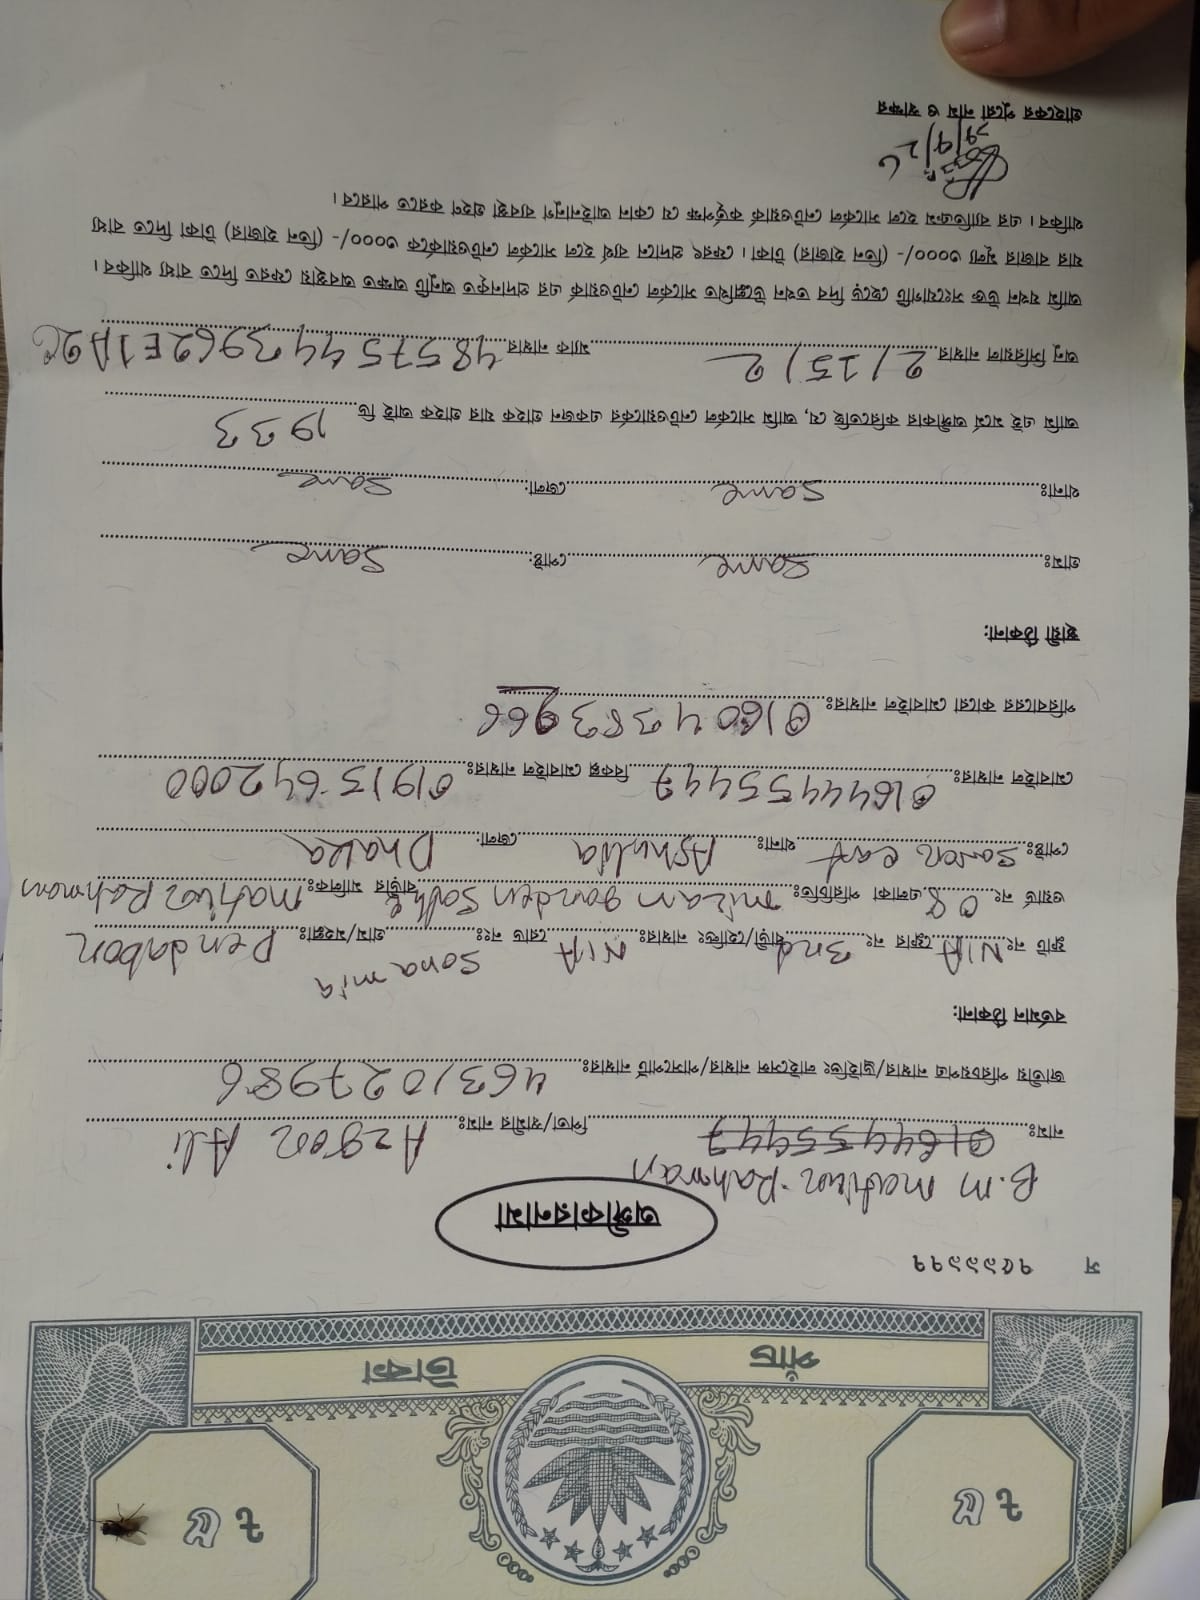 ৳ ৫ ৳ ৫
পাঁচ টাকা
স ৭৫৯৯৯৭৭
অঙ্গীকারনামা
B.M matiur Rahman
নামঃ 01644455447 পিতা/স্বামীর নামঃ Azgor Ali
জাতীয় পরিচয়পত্র নাম্বার/ড্রাইভিং লাইসেন্স নাম্বার/পাসপোর্ট নাম্বারঃ 4631027986
বর্তমান ঠিকানা:
ফ্লাট নং: N/A ফ্লোর নং: 3nd বাড়ী/হোল্ডিং নাম্বারঃ N/A রোড নংঃ Sona mia গ্রাম/মহল্লাঃ Dendabor
ওয়ার্ড নং: 08 এলাকা পরিচিতিঃ milan garden বাড়ীর মালিক: matiur Rahman
পোষ্টঃ থানাঃ Ashulia জেলা: Dhaka
মোবাইল নাম্বারঃ 01644455447 বিকল্প মোবাইল নাম্বারঃ 01915642000
পরিবারের কারো মোবাইল নাম্বারঃ 01604383966
স্থায়ী ঠিকানা:
গ্রামঃ Same পোষ্ট: Same
থানাঃ Same জেলা: Same
আমি এই মর্মে অঙ্গীকার করিতেছি যে, আমি সার্কেল নেটওয়ার্কের একজন গ্রাহক যার গ্রাহক আই ডি 1933
অনু সিরিয়াল নাম্বার 2/15/2 ম্যাক নাম্বার 48575443962E1A2C
আমি যখন উক্ত সংযোগটি ছেড়ে দিব তখন উল্লেখিত সার্কেল নেটওয়ার্ক এর প্রদানকৃত অনুটি অক্ষত অবস্থায় ফেরত দিতে বাধ্য থাকিব।
যার বাজার মূল্য ৩০০০/- (তিন হাজার) টাকা। ফেরৎ প্রদানে ব্যর্থ হলে সার্কেল নেটওয়ার্ককে ৩০০০/- (তিন হাজার) টাকা দিতে বাধ্য
থাকিব। এর ব্যতিক্রম হলে সার্কেল নেটওয়ার্ক কর্তৃপক্ষ যে কোন আইনানুগ ব্যবস্থা গ্রহণ করতে পারবে।
গ্রাহকের পুরো নাম ও স্বাক্ষর